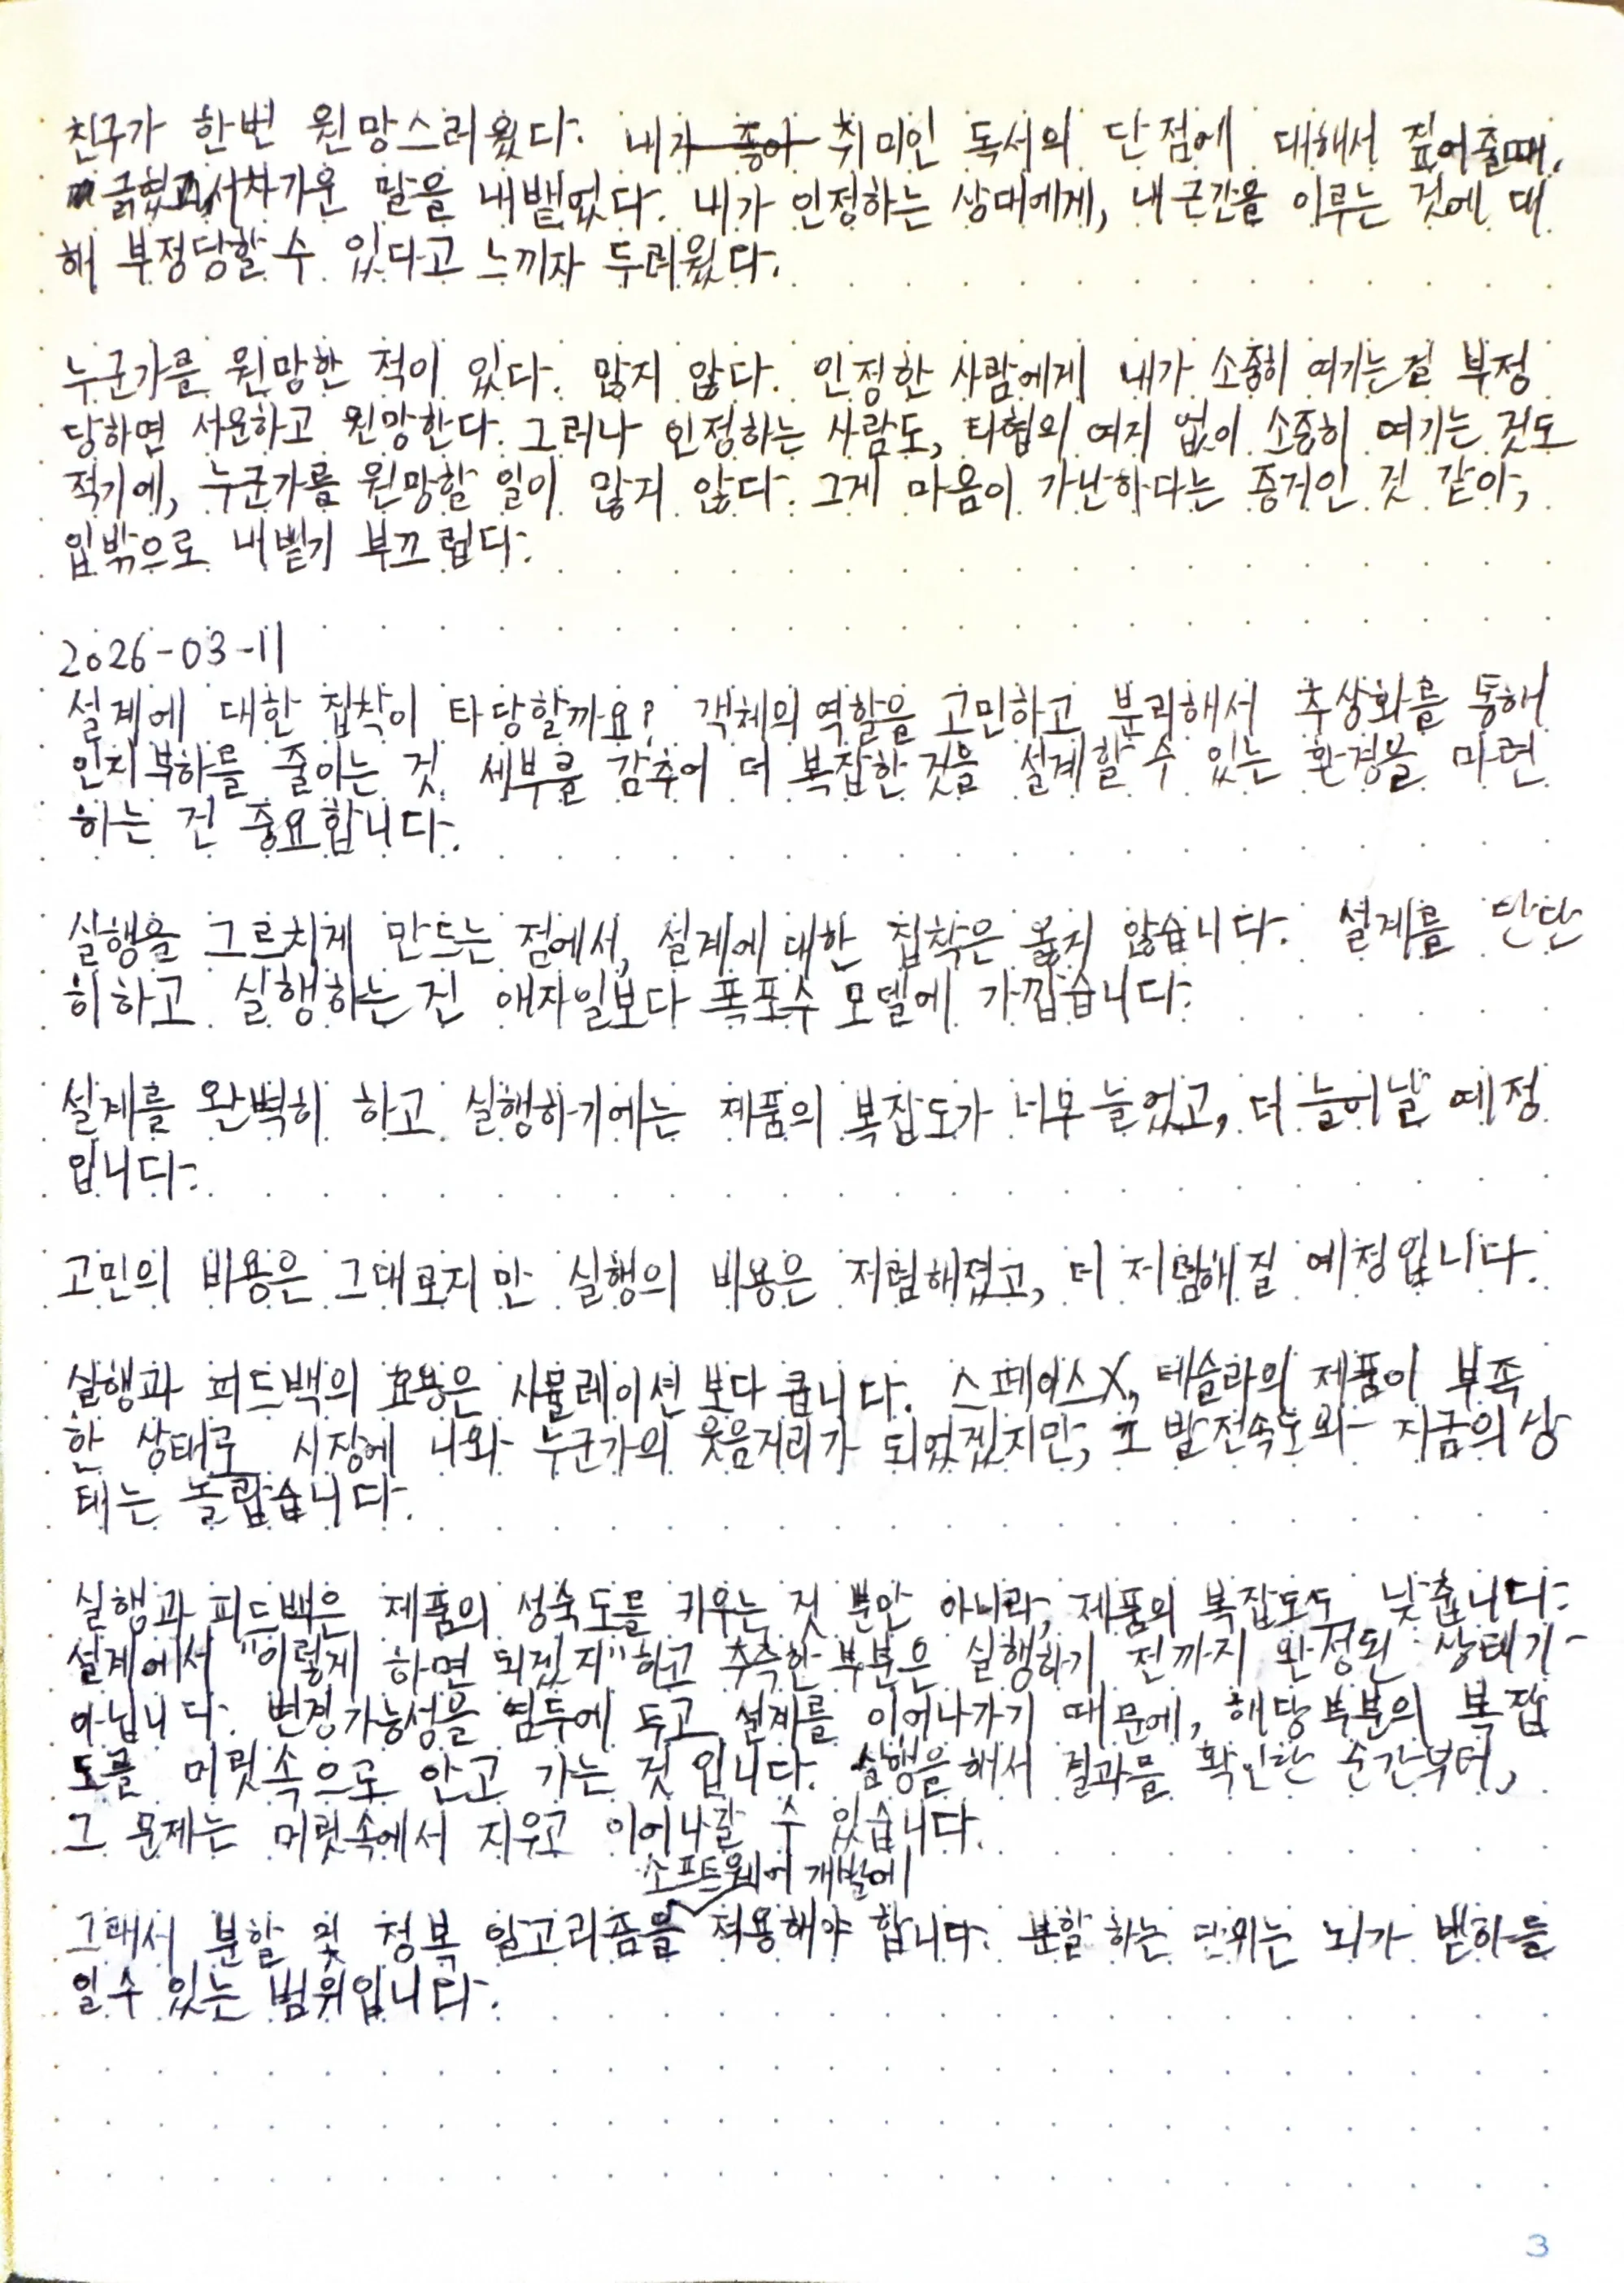 친구가 한번 원망스러웠다. 내가 좋아 취미인 독서의 단점에 대해서 짚어줄때,
긁혔고, 차가운 말을 내뱉었다. 내가 인정하는 상대에게, 내 근간을 이루는 것에 대
해 부정당할 수 있다고 느끼자 두려웠다.
누군가를 원망한 적이 있다. 많지 않다. 인정한 사람에게 내가 소중히 여기는걸 부정
당하면 서운하고 원망한다. 그러나 인정하는 사람도, 타협의 여지 없이 소중히 여기는 것도
적기에, 누군가를 원망할 일이 많지 않다. 그게 마음이 가난하다는 증거인 것 같아,
입밖으로 내뱉기 부끄럽다.
2026-03-11
설계에 대한 집착이 타당할까요? 객체의 역할을 고민하고 분리해서 추상화를 통해
인지부하를 줄이는 것, 세부를 감추어 더 복잡한 것을 설계할 수 있는 환경을 마련
하는 건 중요합니다.
실행을 그르치게 만드는 점에서, 설계에 대한 집착은 옳지 않습니다. 설계를 단단
히하고 실행하는건 애자일보다 폭포수 모델에 가깝습니다.
설계를 완벽히 하고 실행하기에는 제품의 복잡도가 너무 늘었고, 더 늘어날 예정
입니다.
고민의 비용은 그대로지만 실행의 비용은 저렴해졌고, 더 저렴해질 예정입니다.
실행과 피드백의 효용은 시뮬레이션 보다 큽니다. 스페이스X, 테슬라의 제품이 부족
한 상태로 시장에 나와 누군가의 웃음거리가 되었겠지만, 그 발전속도와 지금의 상
태는 놀랍습니다.
실행과 피드백은 제품의 성숙도를 키우는 것 뿐만 아니라, 제품의 복잡도도 낮춥니다.
설계에서 "이렇게 하면 되겠지"하고 추측한 부분은 실행하기 전까지 완성된 상태가
아닙니다. 변경가능성을 염두에 두고 설계를 이어나가기 때문에, 해당 부분의 복잡
도를 머릿속으로 안고 가는 것 입니다. 실행을 해서 결과를 확인한 순간부터,
그 문제는 머릿속에서 지우고 이어나갈 수 있습니다.
소프트웨어 개발에
그래서 분할 및 정복 알고리즘을 적용해야 합니다. 분할 하는 단위는 뇌가 받아들
일수 있는 범위입니다.
3